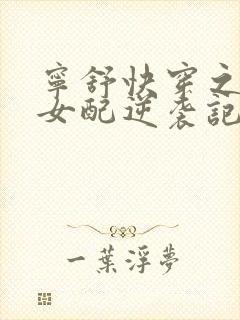 寧舒快穿之
女配逆袭記
一葉浮夢